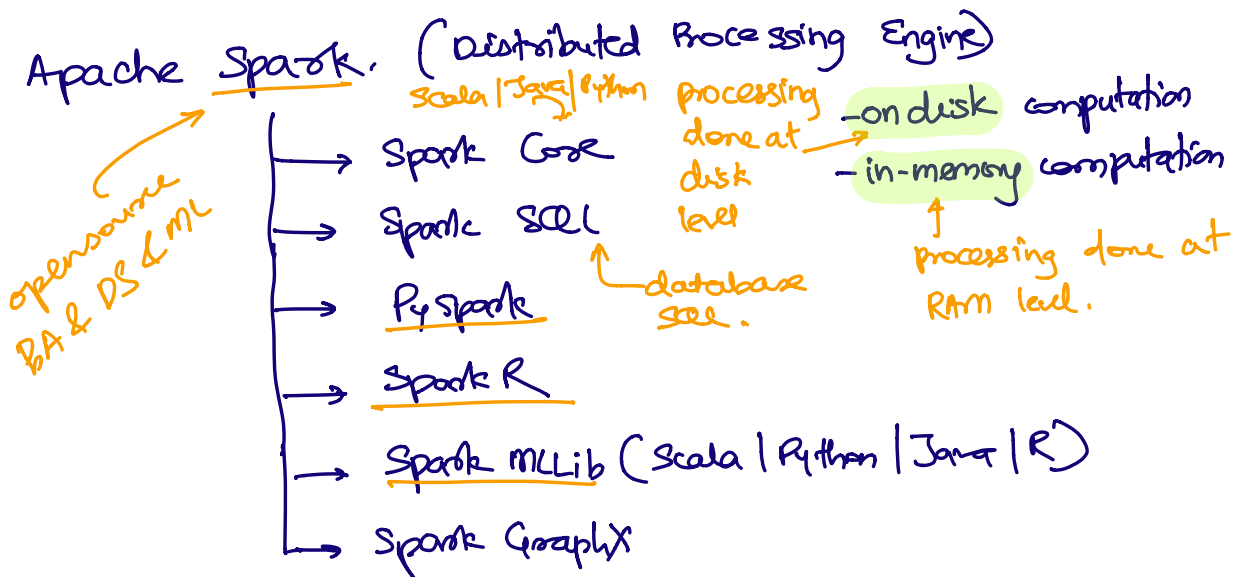 Apache Spark. (Distributed Processing Engine)
Scala | Java | Python
processing
done at
disk
level
- on disk computation
- in-memory computation
processing done at
RAM level.
opensource
BA & DS & ML
Spark Core
Spark SQL
database
SQL.
PySpark
Spark R
Spark MLLib (Scala | Python | Java | R)
Spark GraphX